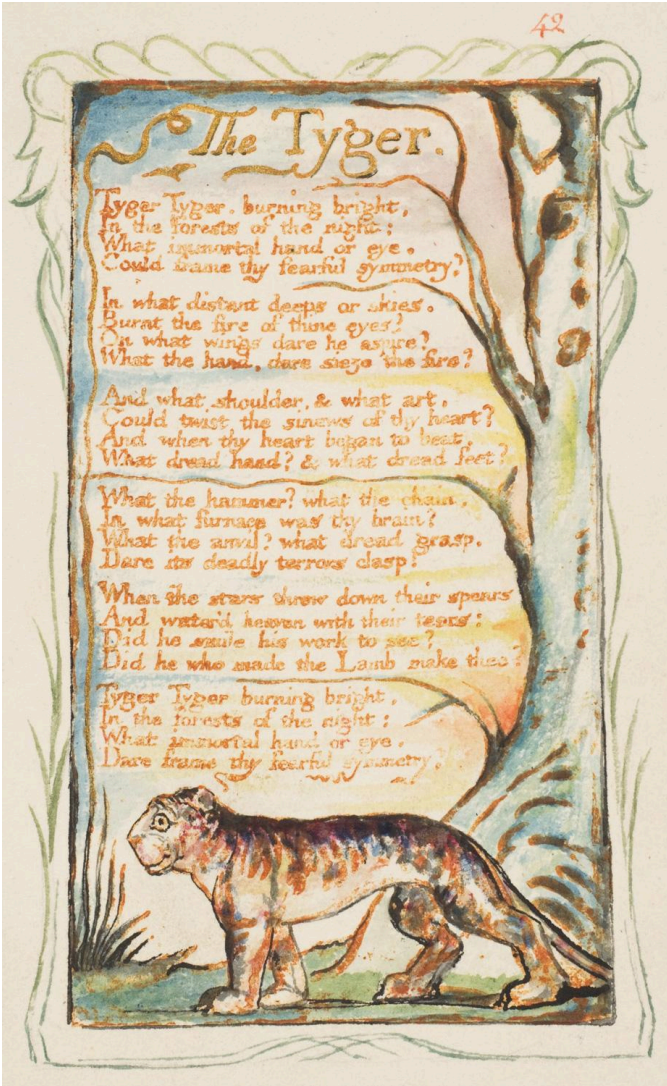 42
The Tyger.
Tyger Tyger. burning bright,
In the forests of the night;
What immortal hand or eye.
Could frame thy fearful symmetry?
In what distant deeps or skies.
Burnt the fire of thine eyes?
On what wings dare he aspire?
What the hand, dare sieze the fire?
And what shoulder, & what art,
Could twist the sinews of thy heart?
And when thy heart began to beat,
What dread hand? & what dread feet?
What the hammer? what the chain,
In what furnace was thy brain?
What the anvil? what dread grasp.
Dare its deadly terrors clasp!
When the stars threw down their spears
And water'd heaven with their tears:
Did he smile his work to see?
Did he who made the Lamb make thee?
Tyger Tyger burning bright,
In the forests of the night:
What immortal hand or eye,
Dare frame thy fearful symmetry?